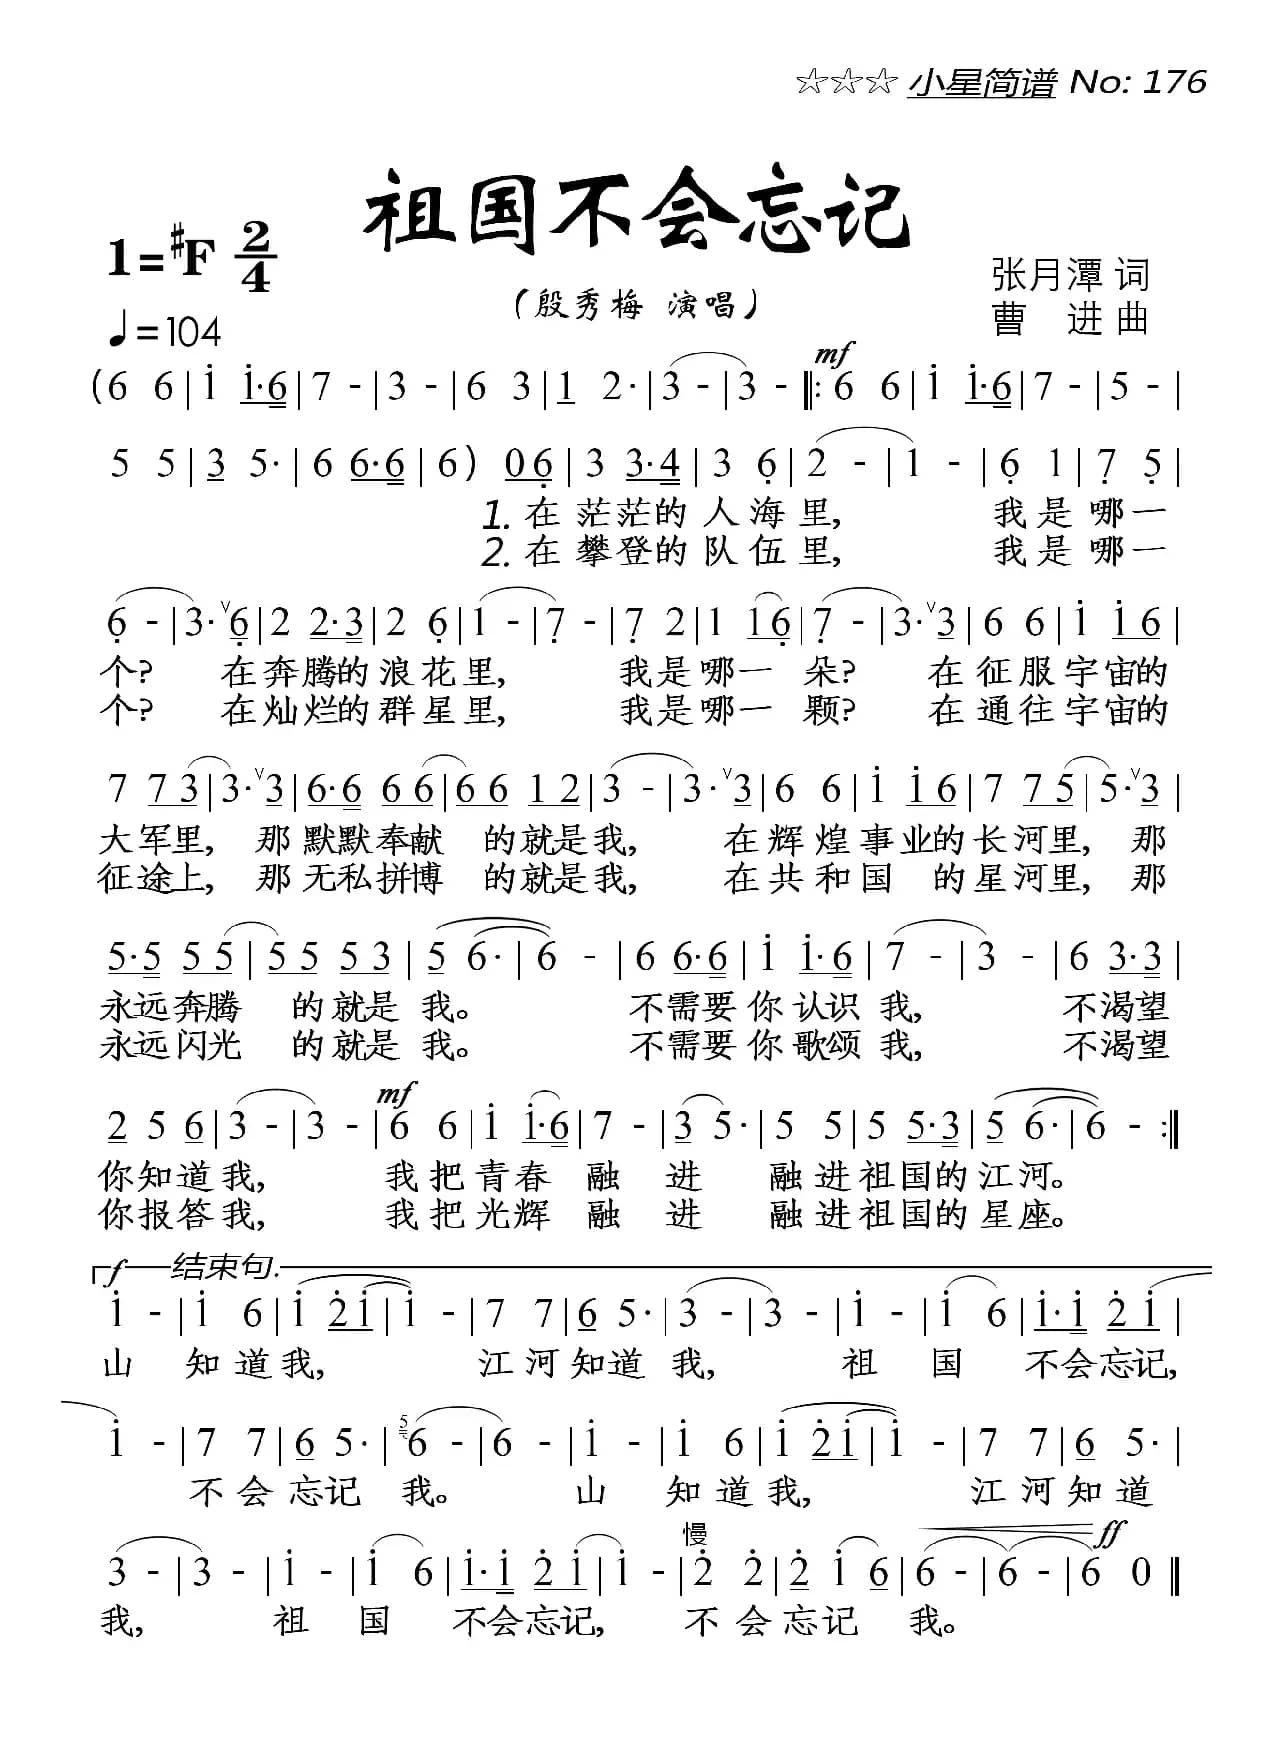 ☆☆☆ 小星简谱 No: 176
祖国不会忘记
1=♯F 2/4
张月潭 词
(殷秀梅 演唱)
曹 进 曲
♩=104
mf
(6 6 | i i·6 | 7 - | 3 - | 6 3 | 1 2· | 3 - | 3 - ‖: 6 6 | i i·6 | 7 - | 5 - |
5 5 | 3 5· | 6 6·6 | 6) 06 | 3 3·4 | 3 6 | 2 - | 1 - | 6 1 | 7 5 |
1. 在茫茫的人海里, 我是哪一
2. 在攀登的队伍里, 我是哪一
6 - | 3· ∨6 | 2 2·3 | 2 6 | 1 - | 7 - | 7 2 | 1 16 | 7 - | 3· ∨3 | 6 6 | i i6 |
个? 在奔腾的浪花里, 我是哪一朵? 在征服宇宙的
个? 在灿烂的群星里, 我是哪一颗? 在通往宇宙的
7 73 | 3· ∨3 | 6·6 66 | 66 12 | 3 - | 3· ∨3 | 6 6 | i i6 | 7 75 | 5· ∨3 |
大军里, 那默默奉献 的就是我, 在辉煌事业的长河里, 那
征途上, 那无私拼博 的就是我, 在共和国 的星河里, 那
5·5 55 | 55 53 | 5 6· | 6 - | 6 6·6 | i i·6 | 7 - | 3 - | 6 3·3 |
永远奔腾 的就是我。 不需要你认识我, 不渴望
永远闪光 的就是我。 不需要你歌颂我, 不渴望
mf
2 5 6 | 3 - | 3 - | 6 6 | i i·6 | 7 - | 3 5· | 5 5 | 5 5·3 | 5 6· | 6 - :‖
你知道我, 我把青春融 进 融进祖国的江河。
你报答我, 我把光辉融 进 融进祖国的星座。
f 结束句.
i - | i 6 | i 2i | i - | 7 7 | 6 5· | 3 - | 3 - | i - | i 6 | i·i 2i |
山 知道我, 江河知道我, 祖 国 不会忘记,
i - | 7 7 | 6 5· | 5 6 - | 6 - | i - | i 6 | i 2i | i - | 7 7 | 6 5· |
不会忘记 我。 山 知道我, 江河知道
慢 ff
3 - | 3 - | i - | i 6 | i·i 2i | i - | 2 2 | 2 i6 | 6 - | 6 - | 6 0 ‖
我, 祖 国 不会忘记, 不会忘记 我。